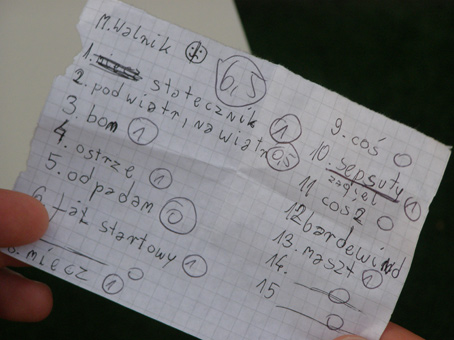 M. Walnik
6,5
1. statecznik 1
2. podwiatr, nawiatr 0,5
3. bom 1
4. ostrzę 1
5. odpadam 0
6. hals startowy 1
0
8. MIECZ 1
9. coś 0
10. sepsuty żagiel 1
11 coś 2 0
12 bardewind
13. maszt 1
14. 0
15 0